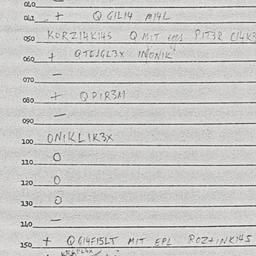 040 –
041 + Q GILI4 MI4L
050 KORZI4KI45 Q MIT PIT3R
060 + QTEJGL3X INONIK
070 –
080 + QDIR3M
090 –
100 ONIKLIR3X
110 O
120 O
130 O
140 –
150 + QGI4FI5LT MIT EPL ROZ+INKI45